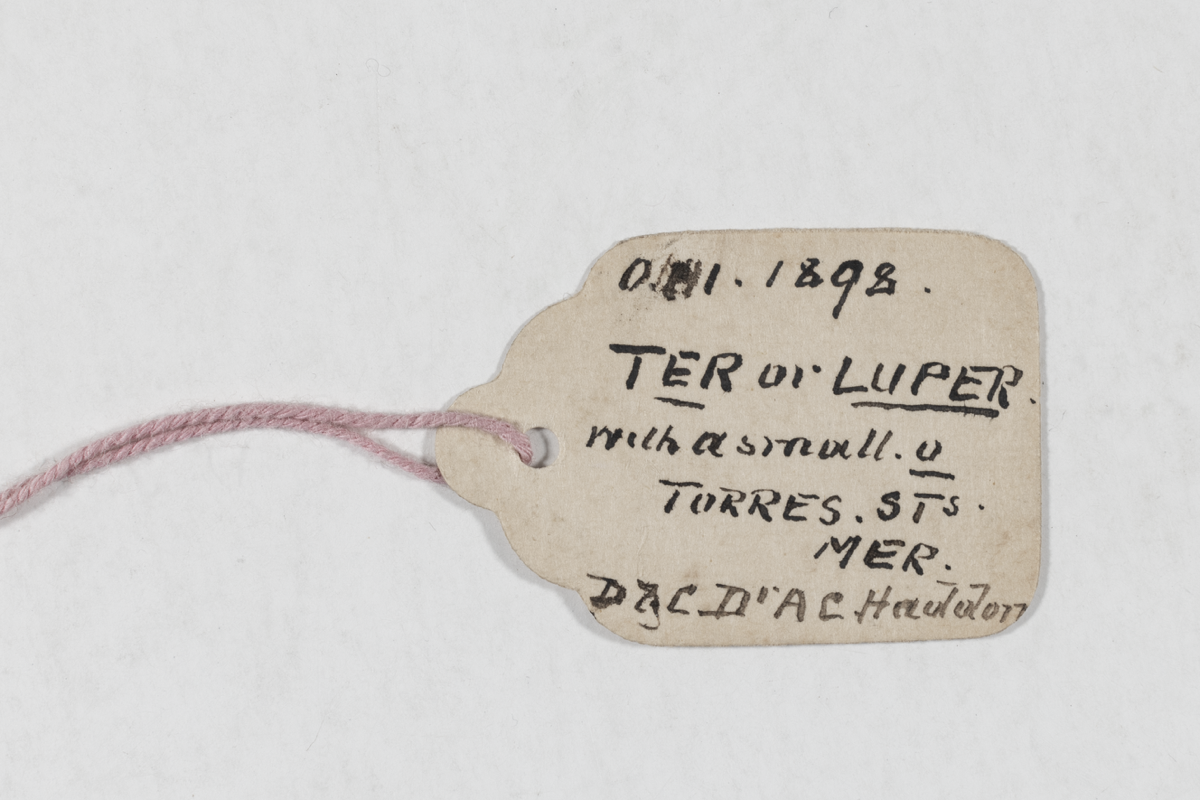 1898.
TER or LUPER.
with a small. u
TORRES. STs.
MER.
D & C Dr A C Haddon